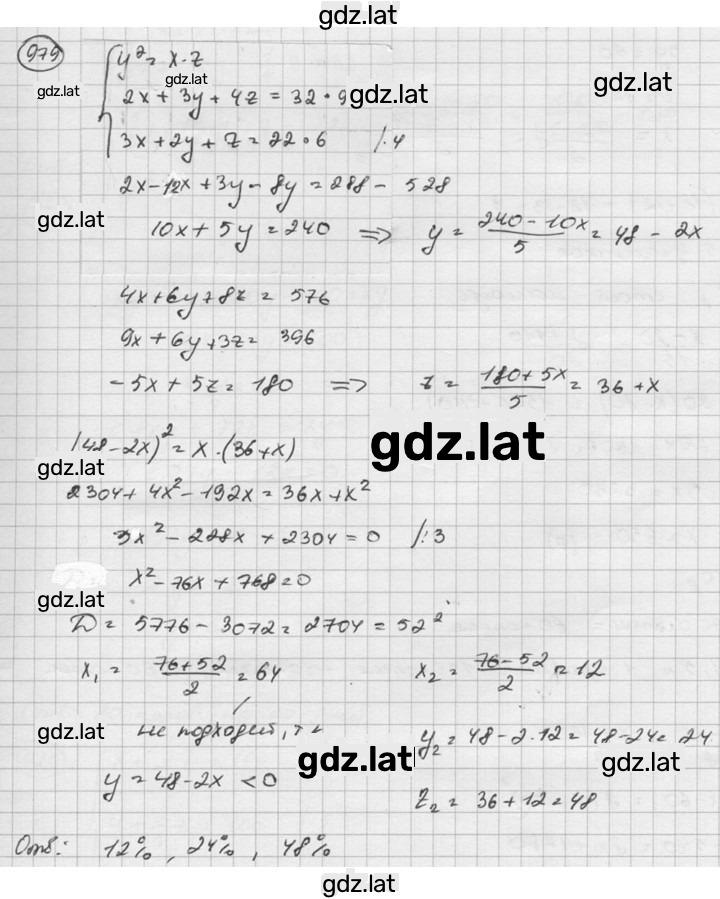 gdz.lat
979
y² = x·z
gdz.lat
gdz.lat
gdz.lat
2x + 3y + 4z = 32·9
gdz.lat
3x + 2y + z = 22·6 /·4
2x - 12x + 3y - 8y = 288 - 528
gdz.lat
10x + 5y = 240 => y = (240 - 10x)/5 = 48 - 2x
4x + 6y + 8z = 576
9x + 6y + 3z = 396
-5x + 5z = 180 => z = (180 + 5x)/5 = 36 + x
gdz.lat
(48 - 2x)² = x·(36 + x)
gdz.lat
2304 + 4x² - 192x = 36x + x²
3x² - 228x + 2304 = 0 /:3
x² - 76x + 768 = 0
gdz.lat
D = 5776 - 3072 = 2704 = 52²
x₁ = (76 + 52)/2 = 64 x₂ = (76 - 52)/2 = 12
gdz.lat
не подходит, т.к
y₂ = 48 - 2·12 = 48 - 24 = 24
gdz.lat
gdz.lat
y = 48 - 2x < 0
z₂ = 36 + 12 = 48
Отв: 12%, 24%, 48%
gdz.lat